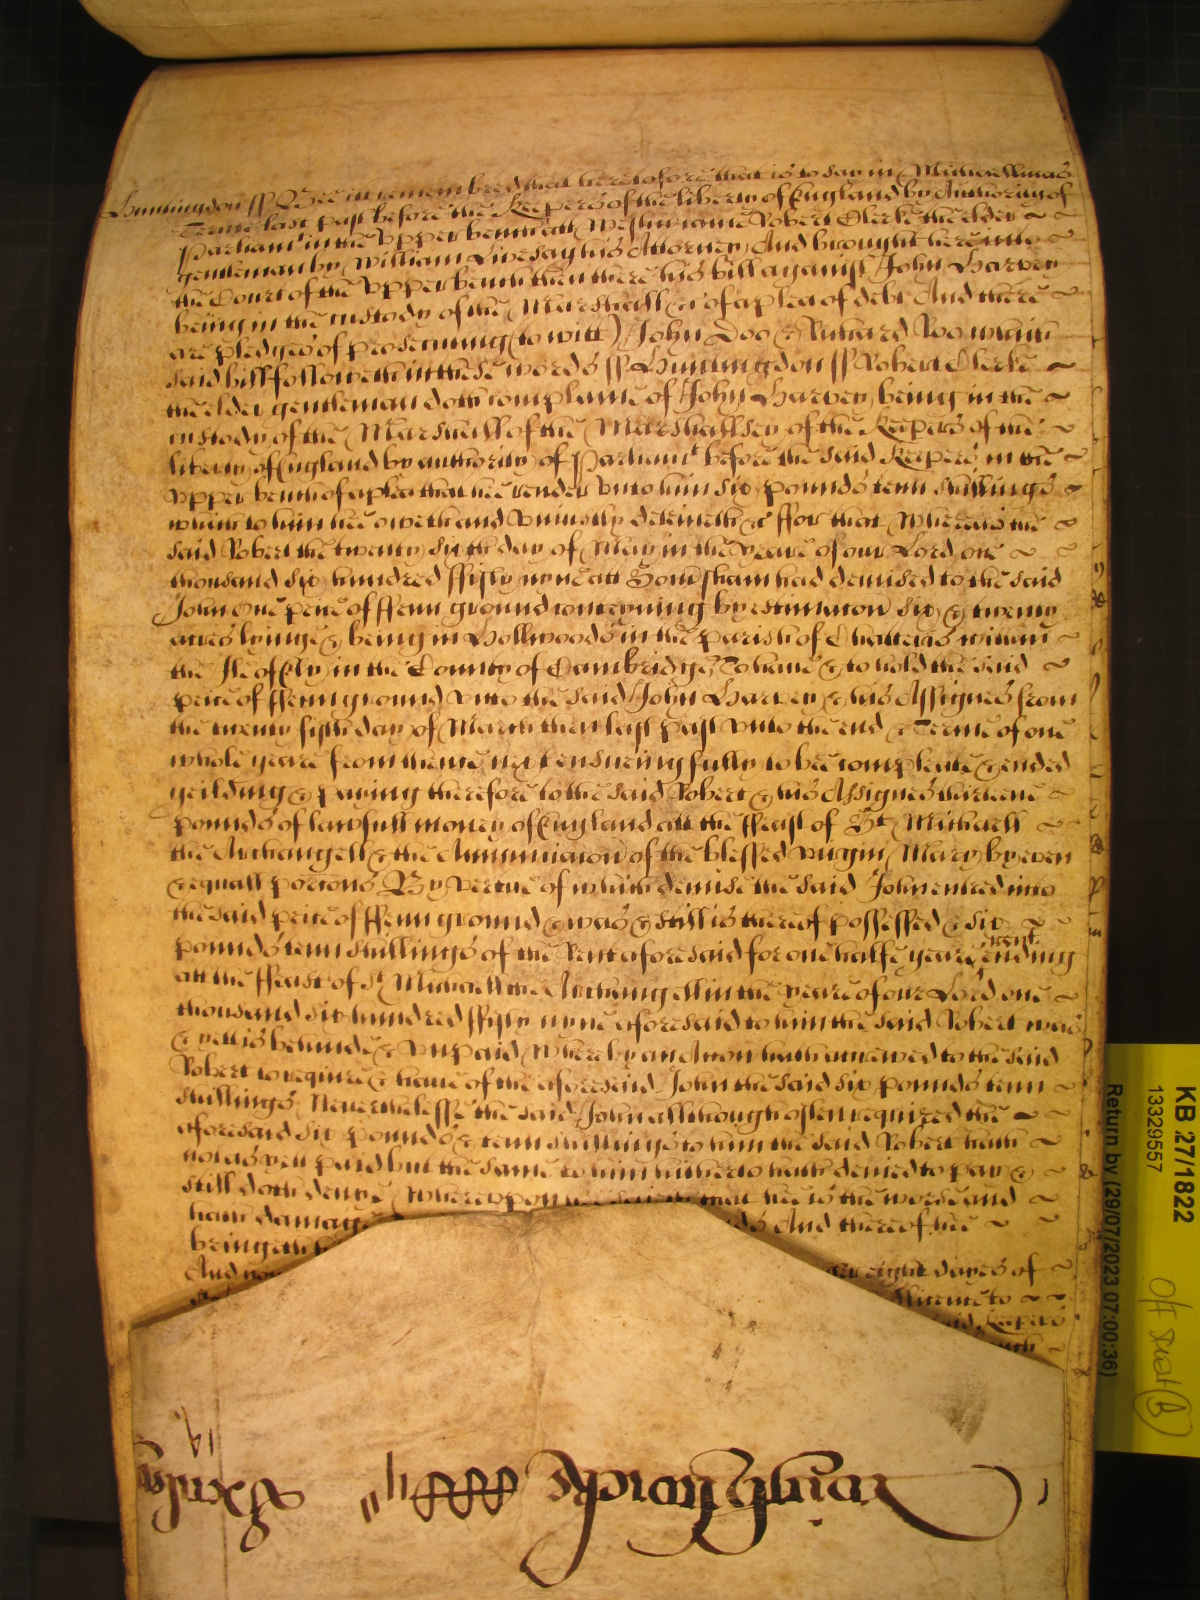 Huntingdon ss Bee it remembred that heretofore that is to say in Michaellmas
Terme last past before the Keepers of the liberty of England by Authority of
Parliamt in the Upper bench att Westm came Robert Clerke the elder
gentleman by William Livesay his Attorney And brought here into
the Court of the Upper bench then there his bill against John Harvey
being in the custody of the Marshall &c of a plea of debt And there
are pledges of prosecuting (to witt) John Doo & Richard Roo which
said bill followeth in these words ss Huntingdon ss Robert Clerke
the elder gentleman doth complaine of John Harvey being in the
custody of the Marshall of the Marshallsey of the Keepers of the
liberty of England by authority of Parliamt before the said Keepers in the
Upper bench of a plea that hee render vnto him six pounds tenn shillings
which to him hee oweth and vniustly deteineth &c ffor that Whereas the
said Robert the twenty sixth day of May in the yeare of our Lord one
thousand six hundred fifty nyne att Somersham had demised to the said
John one peice of ffenn ground conteyning by estimacon six & twenty
acres lyinge & being in Hollwoods in the parish of Chatteris within
the Ile of Ely in the County of Cambridge To have & to hold the said
peice of ffenn ground vnto the said John Harvey & his Assignes from
the twenty fifth day of March then last past vnto the end & Terme of one
whole yeare from thence next ensueing fully to bee compleate & ended
yeilding & paying therefore to the said Robert & his Assignes thirteene
pounds of lawfull money of England att the ffeast of St Michaell
the Archangell & the Annunciacon of the blessed virgin Mary by even
& equall porcons By vertue of which demise the said John entred into
the said peice of ffenn ground & was & still is thereof possessed & six
pounds tenn shillings of the Rent aforesaid for one halfe yeare ending
att the ffeast of St Michaell the Archangell in the yeare of our Lord one
thousand six hundred fifty nyne aforesaid to him the said Robert was
& yett is behinde & vnpaid Whereby an Accon hath accrewed to the said
Robert to require & have of the aforesaid John the said six pounds tenn
shillings Neverthelesse the said John allthough often required the
aforesaid six pounds & tenn shillings to him the said Robert hath
not as yett paid but the same to him hitherto hath denied to pay &
still doth deny Whereupon hee saith that hee is the worse and
hath damage And thereof hee
bringeth
And now eight dayes of
licence to
said Keepers
KB 27/1822
13329557
Return by (29/07/2023 07:00:36)